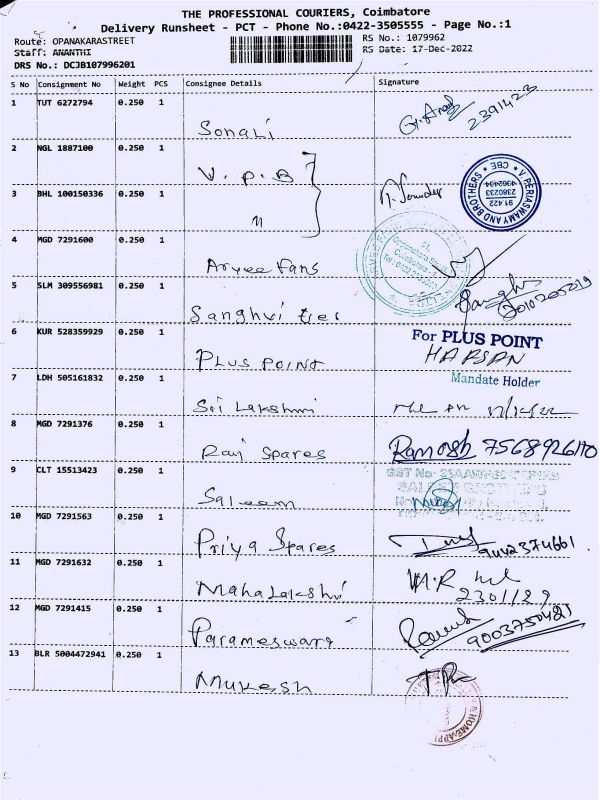 THE PROFESSIONAL COURIERS, Coimbatore
Delivery Runsheet - PCT - Phone No.:0422-3505555 - Page No.:1
Route: OPANAKARASTREET
RS No.: 1079962
Staff: ANANTHI
RS Date: 17-Dec-2022
DRS No.: DCJB107996201
S No Consignment No Weight PCS Consignee Details Signature
1 TUT 6272794 0.250 1 Sonali 2391423
2 NGL 1887100 0.250 1 V.P.B
3 BHL 100150336 0.250 1 "
V. PERIASWAMY AND BROTHERS * CBE *
91 422
2380233
4362434
4 MGD 7291600 0.250 1 Aryee Fans
5 SLM 309556981 0.250 1 Sanghvi ties
6 KUR 528359929 0.250 1 PLUS POINT
For PLUS POINT
Mandate Holder
7 LDH 505161832 0.250 1 Sri Lakshmi 17/12/22
8 MGD 7291376 0.250 1 Raj Spares Ramesh
9 CLT 15513423 0.250 1 Saleem
GST No:
10 MGD 7291563 0.250 1 Priya Spares 9442374661
11 MGD 7291632 0.250 1 Mahalakshmi 2301189
12 MGD 7291415 0.250 1 Parameswari
13 BLR 5004472941 0.250 1 Mukesh